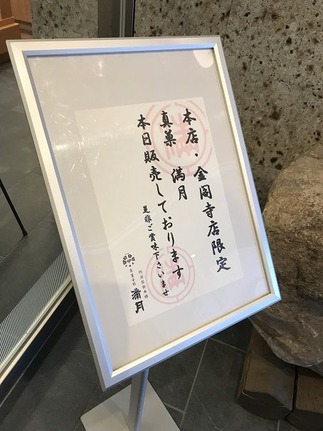 本店・金閣寺店限定
真菓 満月
本日販売しております
是非ご賞味下さいませ
満月